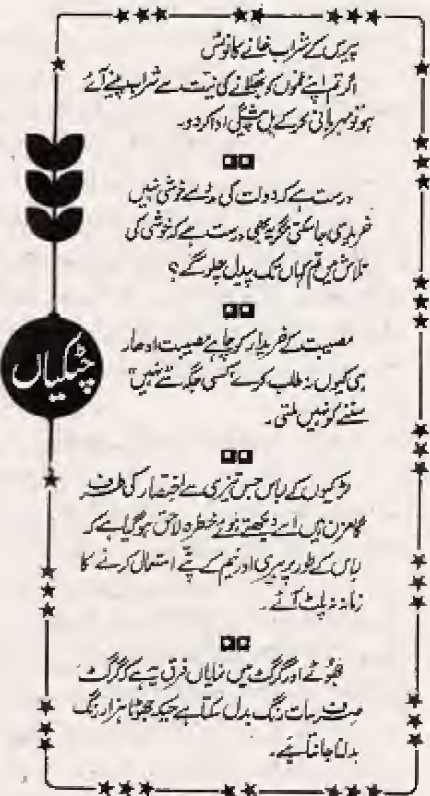 پیرس کے شراب خانے کا نوٹس
اگر تم اپنے غموں کو بھلانے کی نیت سے شراب پینے آئے
ہو تو مہربانی کر کے بل پیشگی ادا کر دو۔
درست ہے کہ دولت کی مدد سے خوشی نہیں
خریدی جا سکتی مگر یہ بھی درست ہے کہ خوشی کی
تلاش میں تم کہاں تک پیدل چلو گے؟
چٹکیاں
مصیبت کے خریدار کو چاہے مصیبت ادھار
ہی کیوں نہ طلب کرے کسی جگہ سے "نہیں"
سننے کو نہیں ملتی۔
لڑکیوں کے لباس جس تیزی سے اختصار کی طرف
گامزن ہیں اسے دیکھتے ہوئے خطرہ لاحق ہو گیا ہے کہ
لباس کے طور پر بیری اور نیم کے پتے استعمال کرنے کا
زمانہ نہ پلٹ آئے۔
جھوٹے اور گرگٹ میں نمایاں فرق یہ ہے کہ گرگٹ
صرف سات رنگ بدل سکتا ہے جبکہ جھوٹا ہزار رنگ
بدلنا جانتا ہے۔